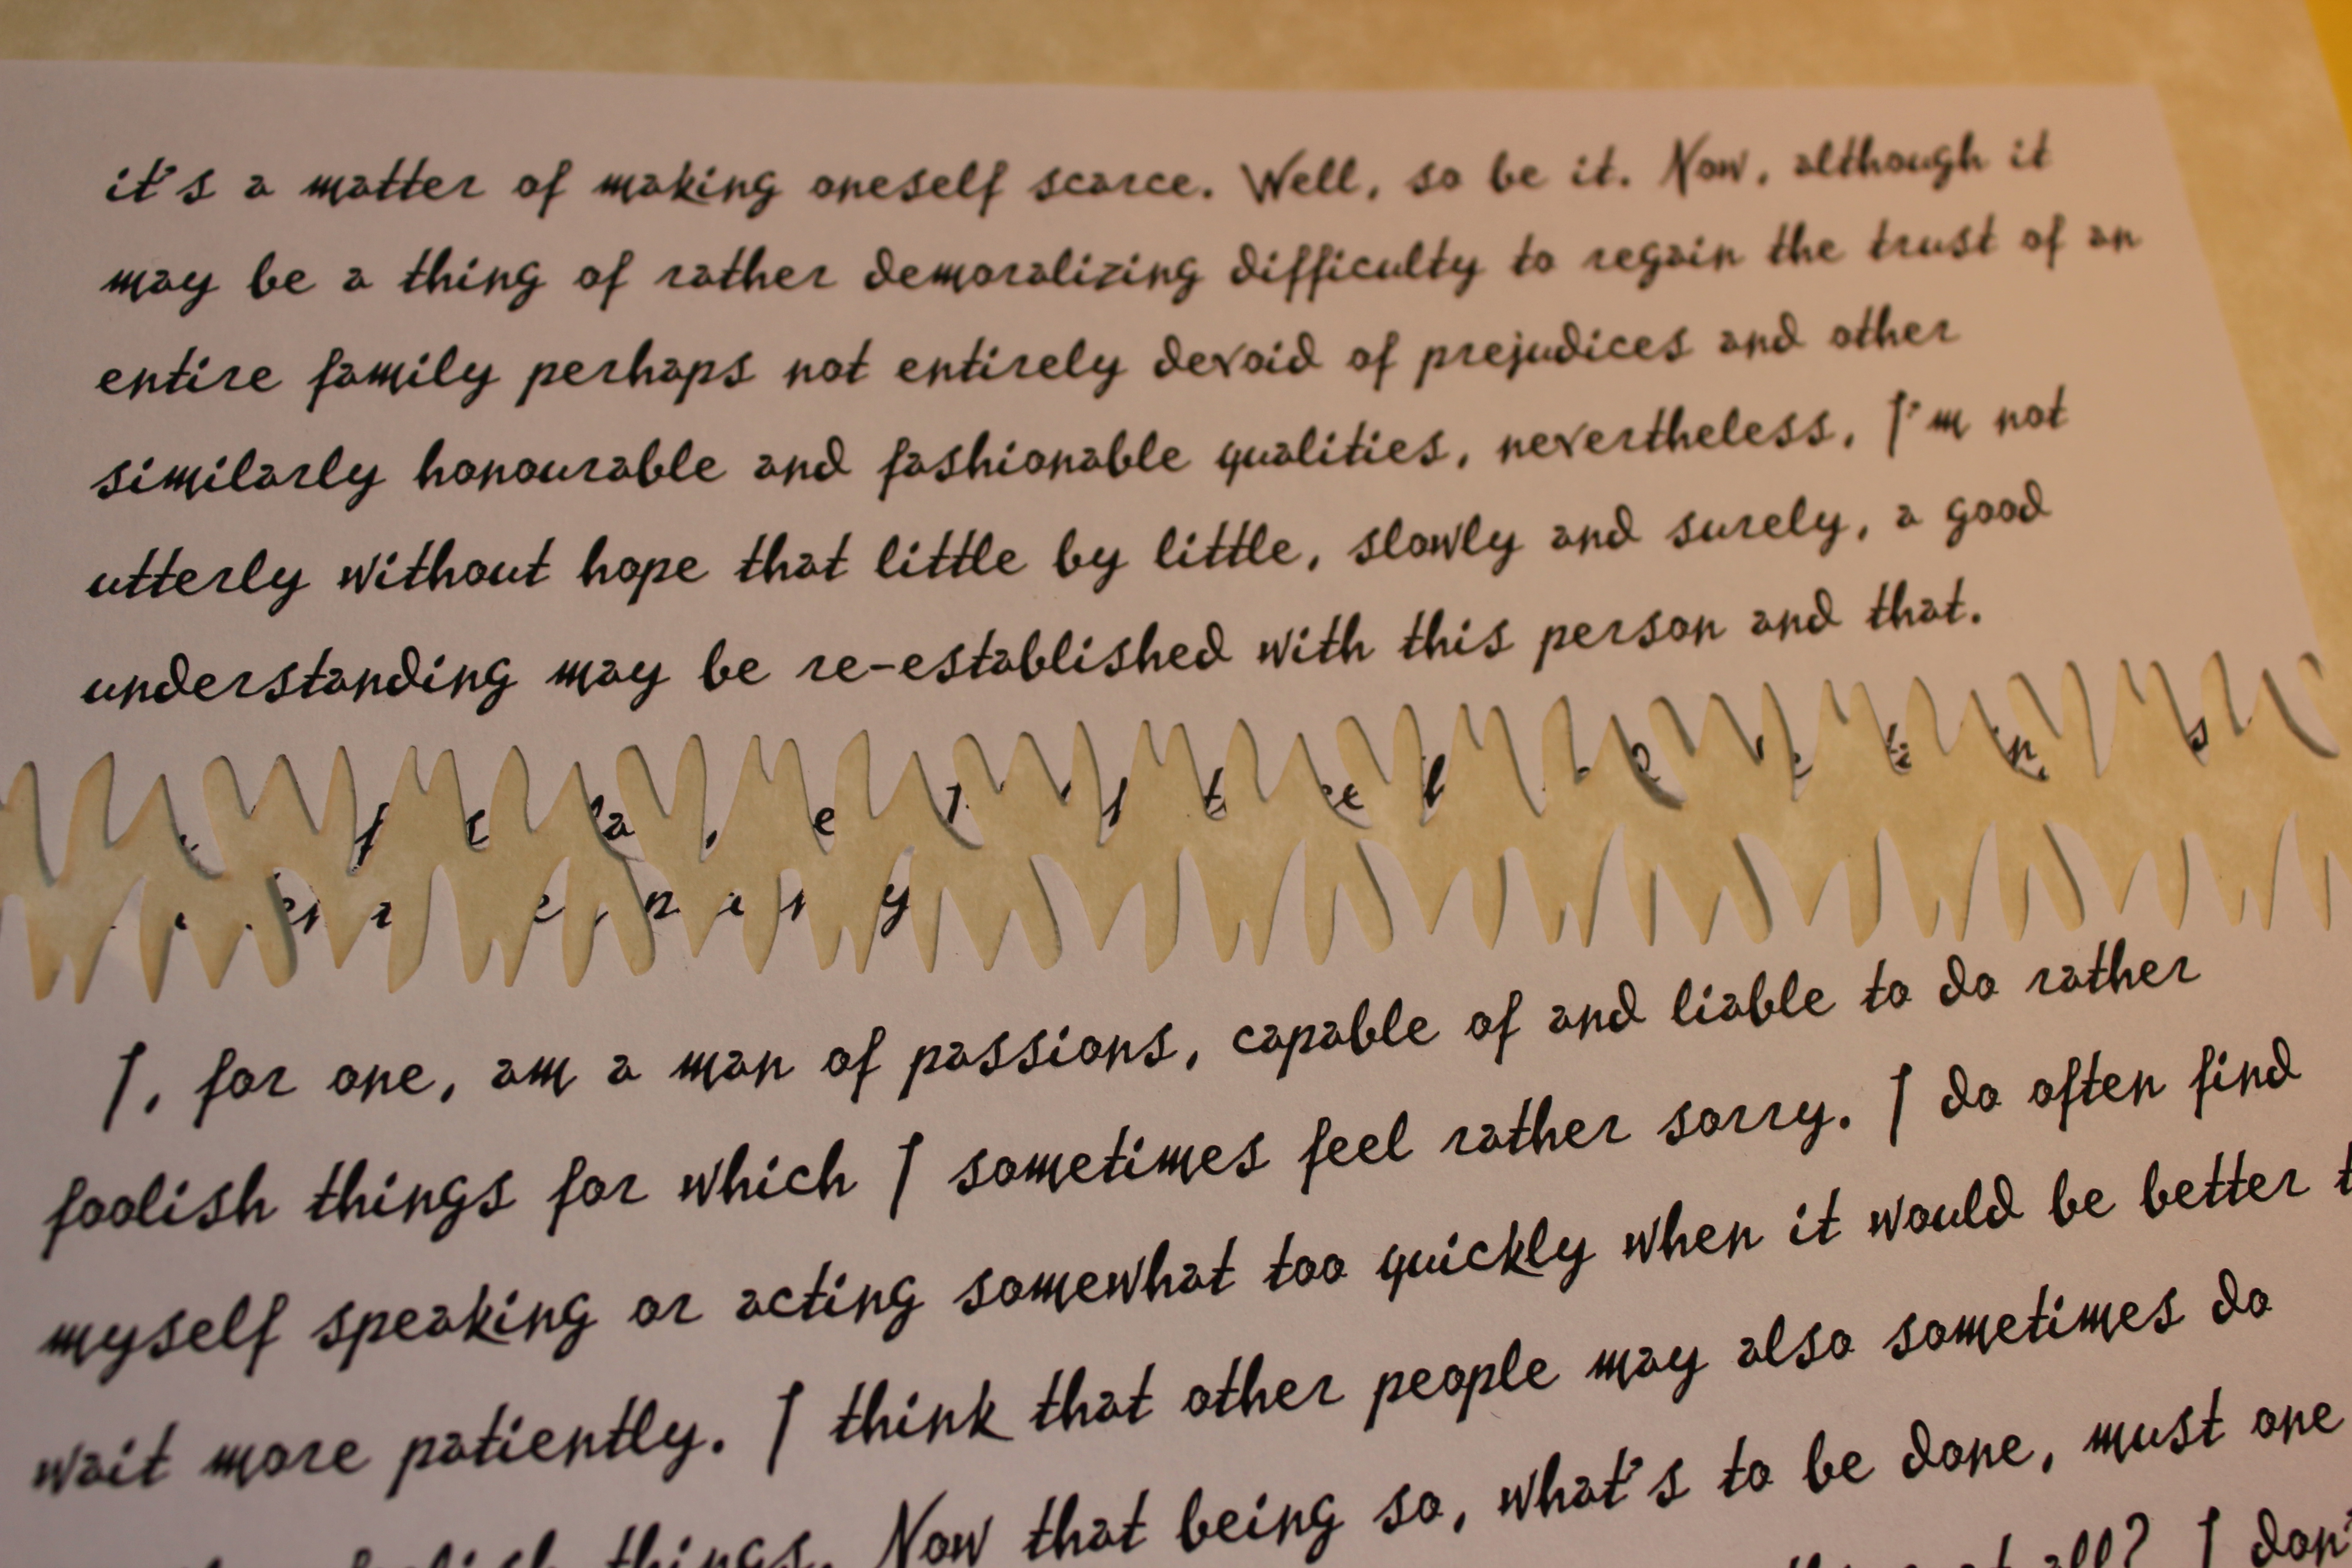 it's a matter of making oneself scarce. Well, so be it. Now, although it
may be a thing of rather demoralizing difficulty to regain the trust of an
entire family perhaps not entirely devoid of prejudices and other
similarly honourable and fashionable qualities, nevertheless, I'm not
utterly without hope that little by little, slowly and surely, a good
understanding may be re-established with this person and that.
I, for one, am a man of passions, capable of and liable to do rather
foolish things for which I sometimes feel rather sorry. I do often find
myself speaking or acting somewhat too quickly when it would be better
wait more patiently. I think that other people may also sometimes do
things. Now that being so, what's to be done, must one
all? I don't